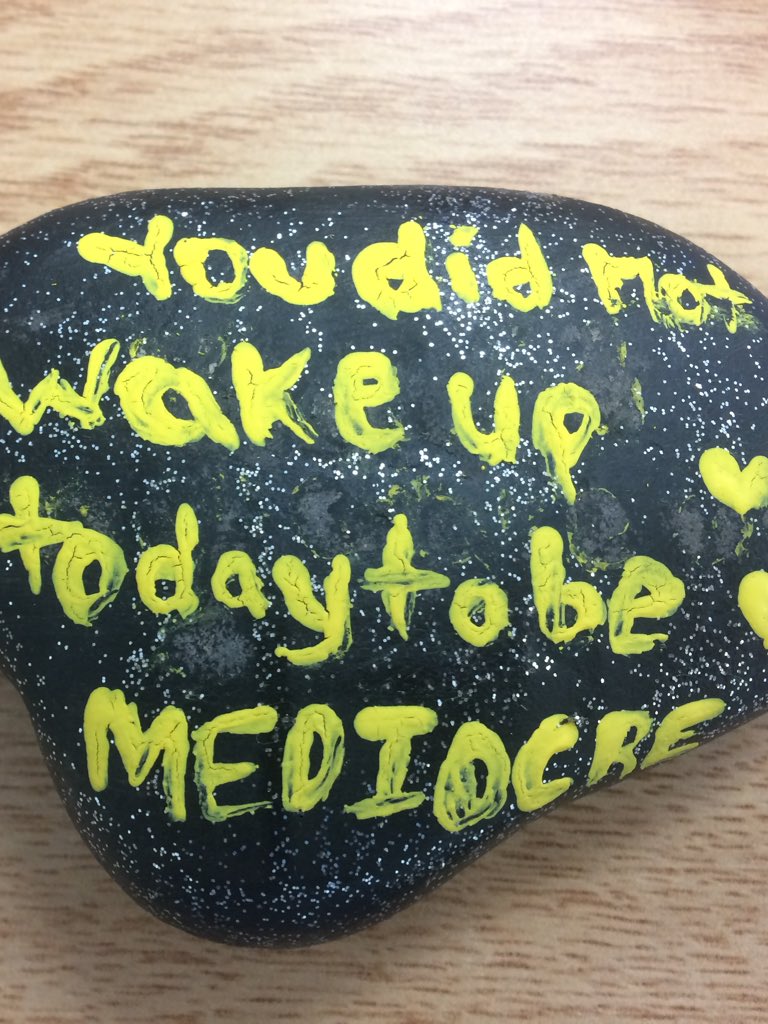 You did not
wake up
today to be
MEDIOCRE